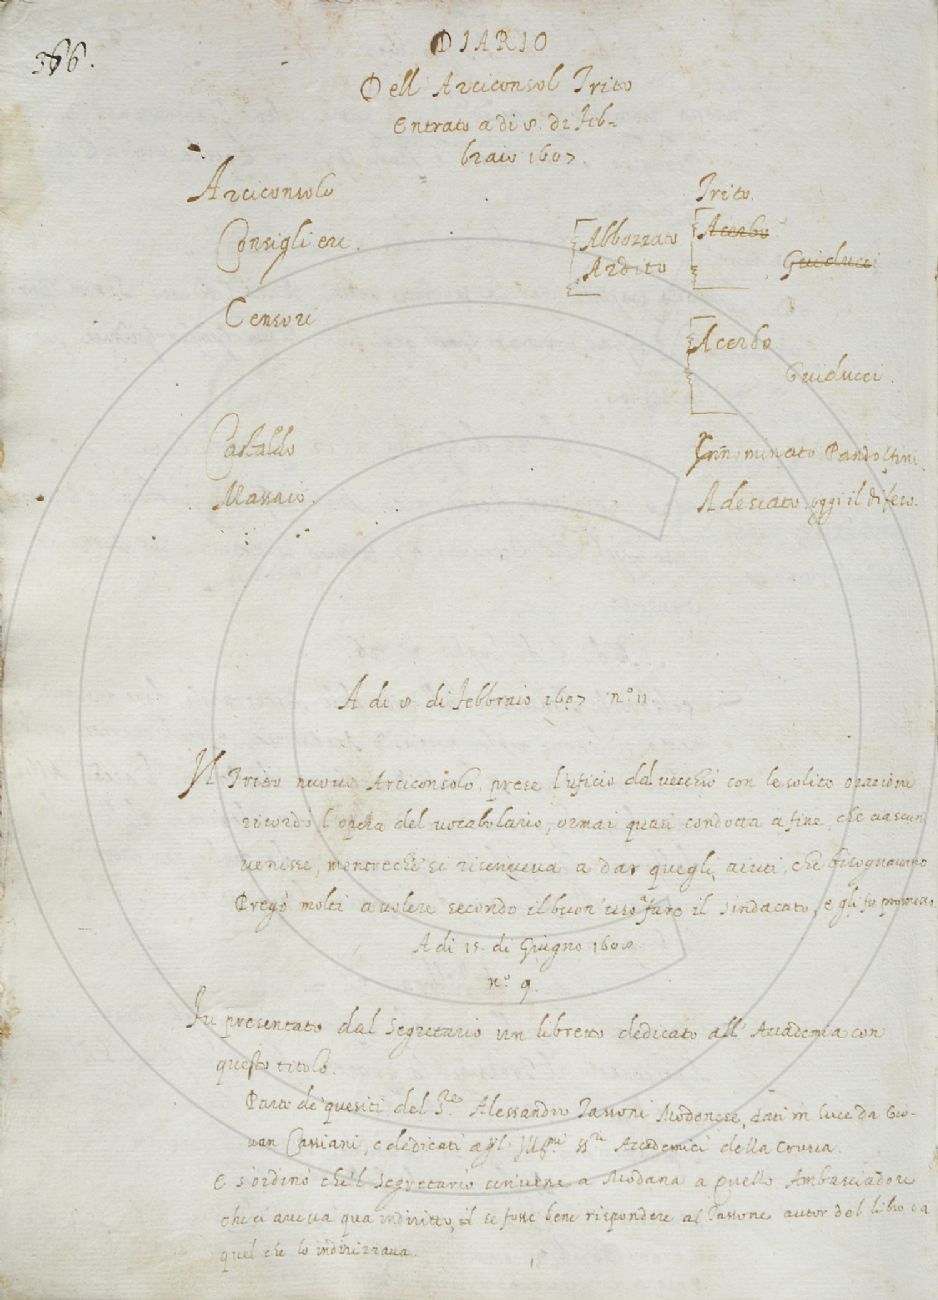 366.
DIARIO
Dell Arciconsol Trito
Entrato a di 8. di Feb-
braio 1607.
Arciconsolo Trito.
Consiglieri. Abbozzato Acerbo
Ardito Guiducci
Censori Acerbo
Guiducci.
Castaldo Innominato Pandolfini.
Massaio. Adesciato, oggi il difeso.
A di 8 di Febbraio 1607 n.º 11
Il Trito nuovo Arciconsolo, prese l'uficio dal vecchio con le solite orazioni
ricordò l'opera del vocabolario, ormai quasi condotta a fine, che ciascun
venisse, mentreche si riscriveva a dar quegli aiuti, che bisognavano
Pregò molti a volere secondo il buon' uso fare il sindacato, e gli fu promesso.
A di 15. di Giugno 1608.
n.º 9.
Fu presentato dal Segretario un libretto dedicato all' Accademia con
questo titolo.
Parte de' quesiti del S.re Alessandro Tassoni Modonese, dati in luce da Gio-
van Cassiani, e dedicati agl' Ill.mi SS.ri Accademici della Crusca.
E s'ordinò che'l Segretario scrivesse a Modana a quello Ambasciadore
che ci aveva qua indiritto, se fosse bene rispondere al Tassone autor del libro o a
quel che lo indirizzava.